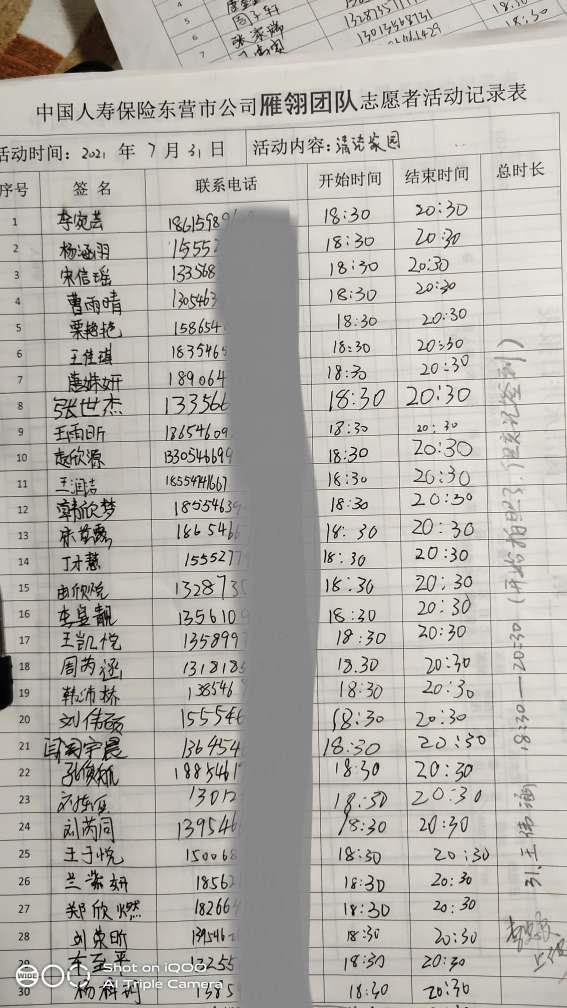 13013568131
18:30
中国人寿保险东营市公司雁翎团队志愿者活动记录表
活动时间：2021 年 7 月 31 日 活动内容：清洁家园
序号 签 名 联系电话 开始时间 结束时间 总时长
1 李宛芸 18615989 18:30 20:30
2 杨涵羽 15552 18:30 20:30
3 宋信瑶 133568 18:30 20:30
4 曹雨晴 1305463 18:30 20:30
5 栗艳艳 158654 18:30 20:30
6 王佳琪 1835465 18:30 20:30
7 唐姝妍 189064 18:30 20:30
8 张世杰 133566 18:30 20:30
9 王雨昕 13654609 18:30 20:30
10 欣源 1330546699 18:30 20:30
11 王润洁 18554741667 18:30 20:30
12 韩欣梦 18554639 18:30 20:30
13 186546 18:30 20:30
14 丁才慧 1555277 18:30 20:30
15 由欣悦 1328735 18:30 20:30
16 李昱靓 1356109 18:30 20:30
17 王凯悦 1358997 18:30 20:30
18 周芮涵 1318183 18.30 20:30
19 韩沛桥 138546 18:30 20:30
20 刘伟硕 155546 18:30 20:30
21 闫宇晨 136454 18:30 20:30
22 188546 18:30 20:30
23 1301 18:30 20:30
24 刘芮同 139546 18:30 20:30
25 王子悦 150068 18:30 20:30
26 兰妍 18562 18:30 20:30
27 郑欣燃 182664 18:30 20:30
28 刘荣昕 139546 18:30 20:30
29 平 13255 18:30 20:30
30 杨科 1385 18:30 20:30
王伟涵 18:30—20:30 (开始拍照了，但忘记签到)
Shot on iQOO
AI Triple Camera
WIDE